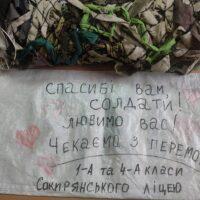 СПАСИБІ ВАМ,
СОЛДАТИ!
ЛЮБИМО ВАС!
ЧЕКАЄМО З ПЕРЕМО
1-А ТА 4-А КЛАСИ
СОКИРЯНСЬКОГО ЛІЦЕЮ